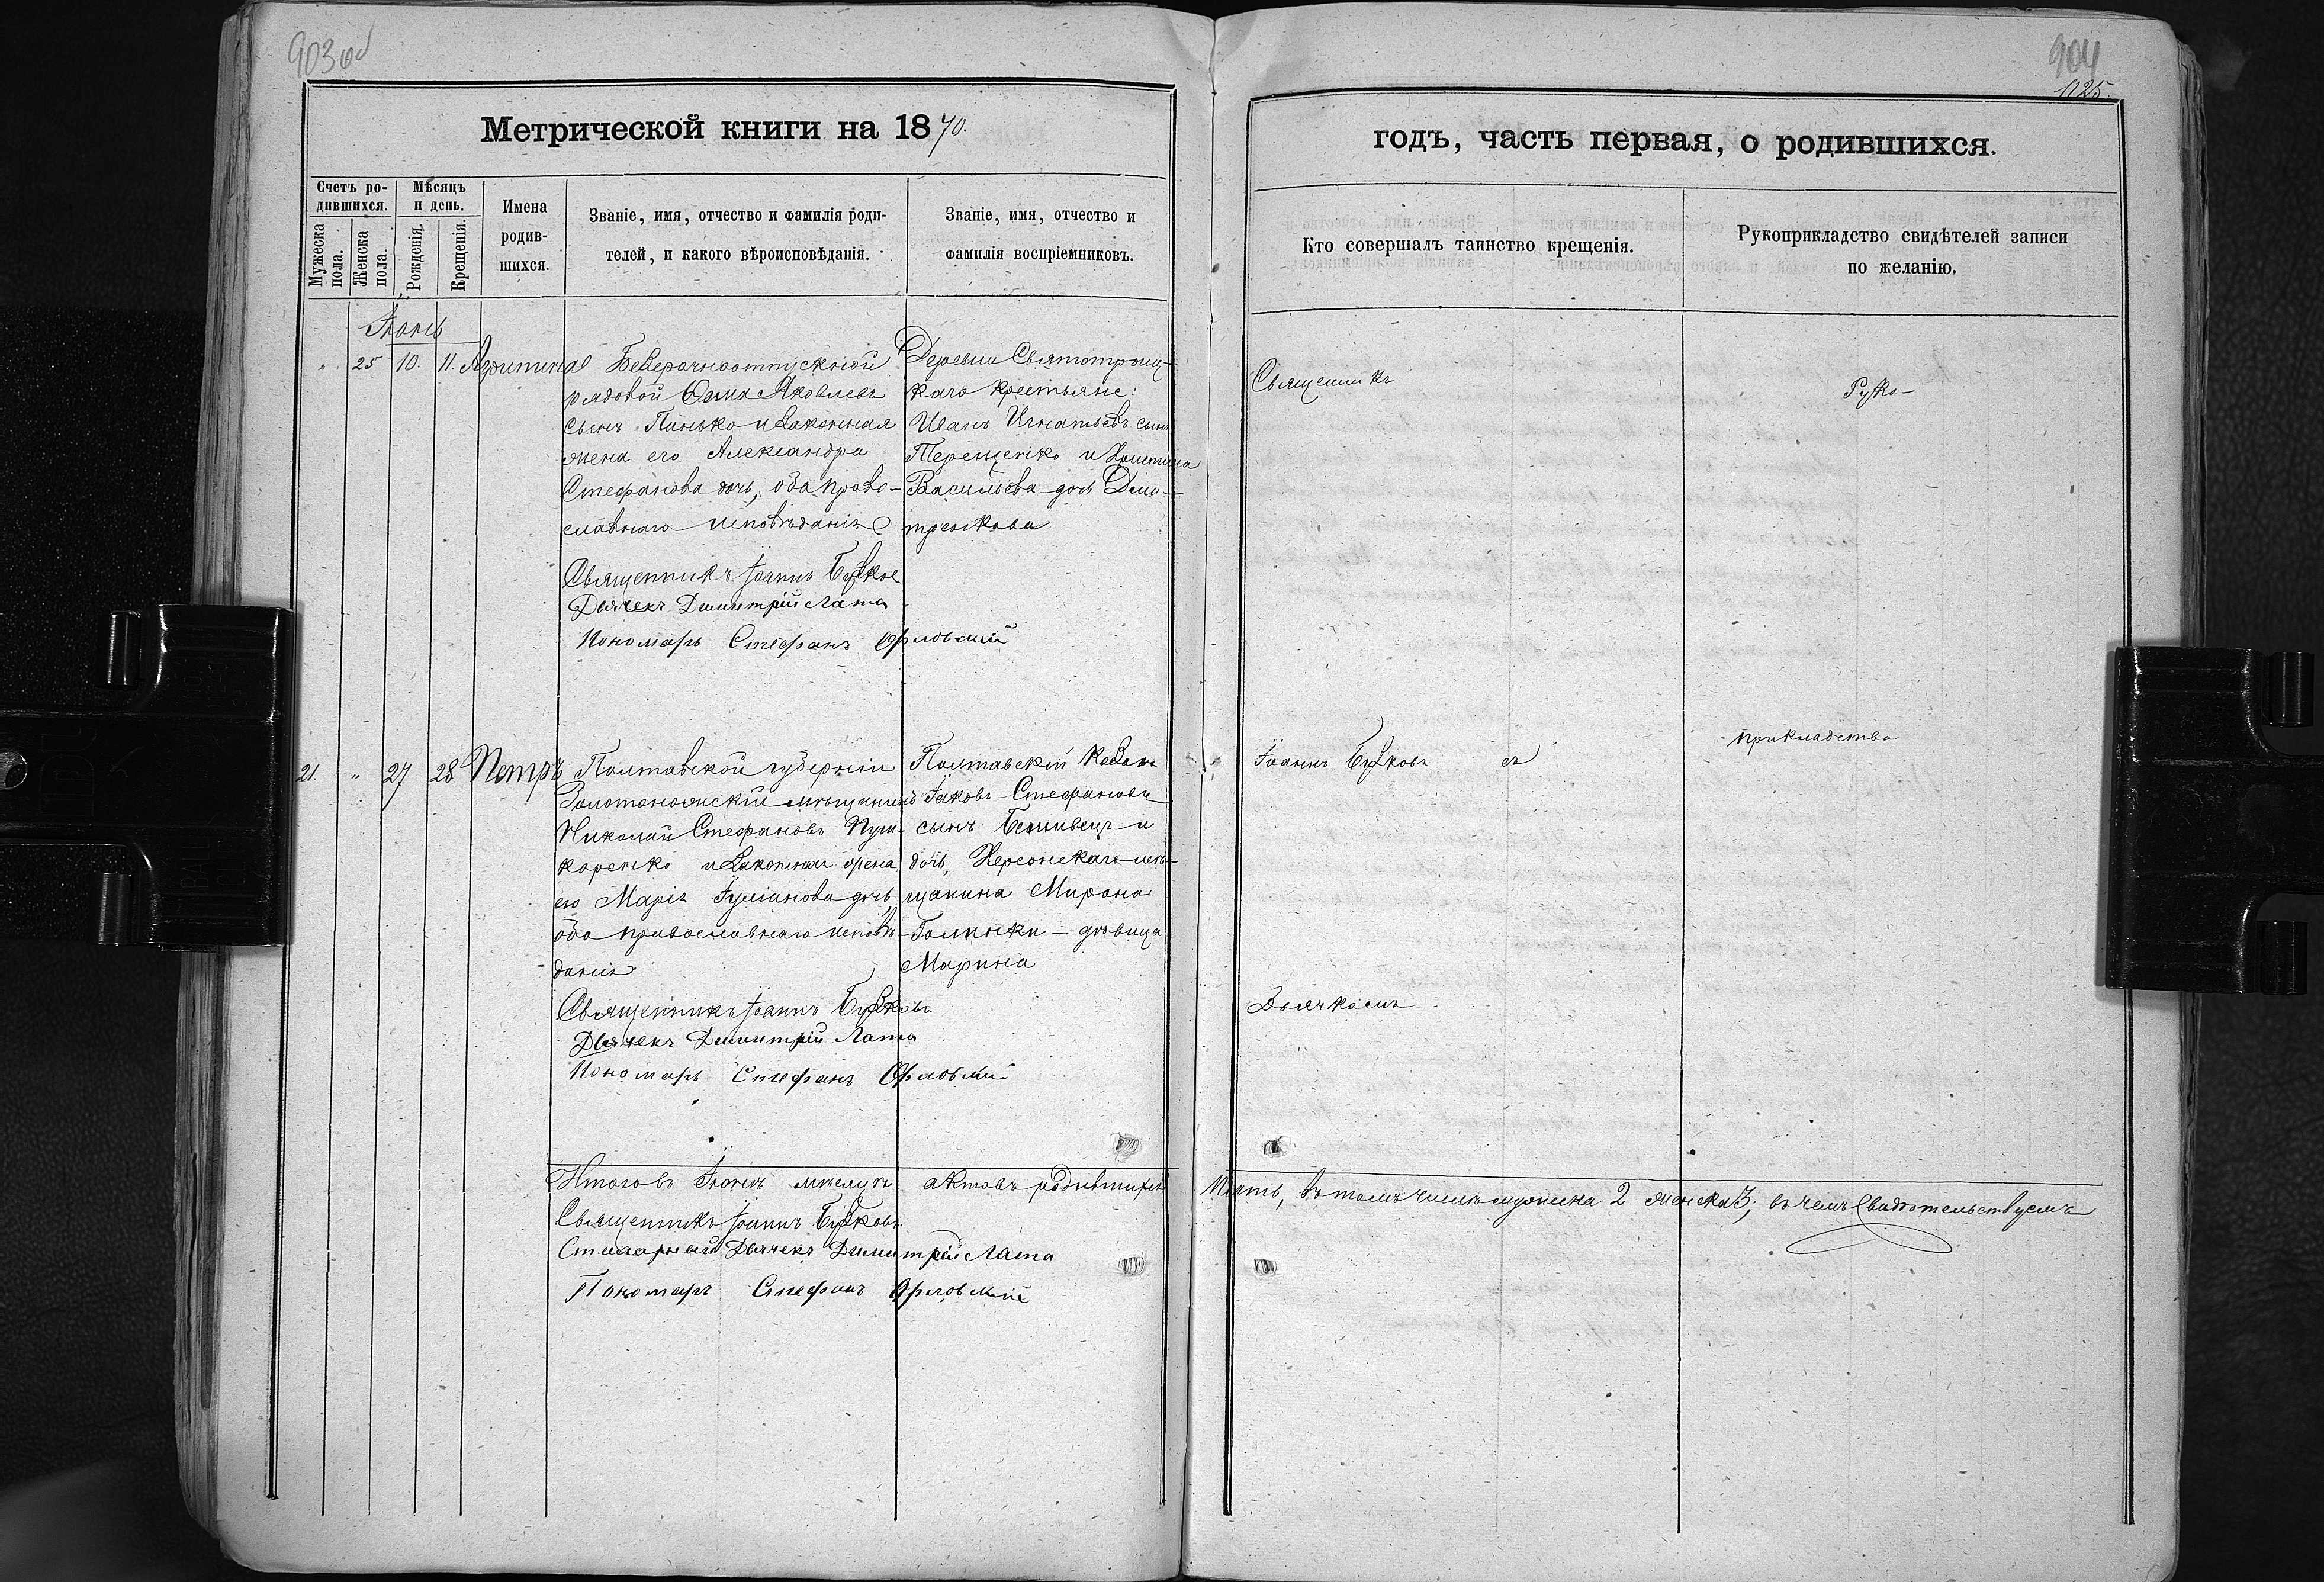 903 об
904
1125.
Метрической книги на 1870.
годъ, часть первая, о родившихся.
Счетъ ро-
дившихся.
Мужеска
пола.
Женска
пола.
Мѣсяцъ
и день.
Рожденія.
Крещенія.
Имена
родив-
шихся.
Званіе, имя, отчество и фамилія роди-
телей, и какого вѣроисповѣданія.
Званіе, имя, отчество и
фамилія воспріемниковъ.
Кто совершалъ таинство крещенія.
Рукоприкладство свидѣтелей записи
по желанію.
Іюнь
" 25 10. 11. Агрипина
Безсрочноотпускной
рядовой Яковлевъ
сынъ Панько и законная
жена его Александра
Стефанова дочь, оба право-
славнаго исповѣданія
Священникъ Іоаннъ
Дьячекъ Димитрій Лата
Пономарь Стефанъ Орловскій
Деревни Святотроиц-
каго крестьяне:
Иванъ Игнатьевъ сынъ
Терещенко и Христина
Васильева дочь Дми-
тренкова
Священникъ
Руко-
21. " 27 28 Петръ
Полтавской губерніи
Золотоношскій мѣщанинъ
Николай Стефановъ Пуш-
каренко и законная жена
его Марія Іуліанова дочь,
оба православнаго исповѣ-
данія
Священникъ Іоаннъ
Дьячекъ Димитрій Лата
Пономарь Стефанъ Орловскій
Полтавскій козакъ
Іаковъ Стефановъ
сынъ и
дочь, Херсонскаго мѣ-
щанина Мирона
Голинки - дѣвица
Марина
Іоаннъ съ
прикладства
Дьячкомъ
Итого въ Іюнѣ мѣсяцѣ актовъ родившихся
Пять, въ томъ числѣ мужеска 2 женска 3; въ чемъ свидѣтельствуемъ
Священникъ Іоаннъ
Дьячекъ Димитрій Лата
Пономарь Стефанъ Орловскій